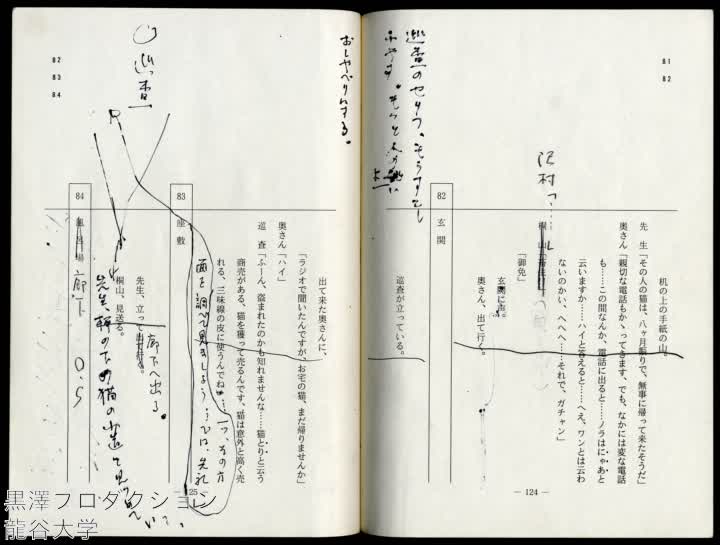 81
82
巡査のセリフ、もうすこし
ふやす。もっと人の好い
沢村「……」
82 玄関
机の上の手紙の山。
先 生「その人の猫は、八ヶ月振りで、無事に帰って来たそうだ」
奥さん「親切な電話もかゝってきます、でも、なかには変な電話
も……この間なんか、電話に出ると……ノラはにゃあと
云いますか……ハイと答えると……へえ、ワンとは云わ
ないのかい、へへへ……それで、ガチャン」
「御免」
玄関に声。
奥さん、出て行く。
巡査が立っている。
― 124 ―
82
83
84
おしゃべりにする。
巡査
出て来た奥さんに、
「ラジオで聞いたんですが、お宅の猫、まだ帰りませんか」
奥さん「ハイ」
巡 査「ふーん、盗まれたのかも知れませんな……猫とりと云う
商売がある、猫を獲って売るんです、猫は意外と高く売
れる、三味線の皮に使うんでね……一つ、その方
面を調べて見ましょう……では、失礼
83 座敷
先生、立って
廊下へ出る。
桐山、見送る。
84
廊下
先生、
猫の
25
黒澤プロダクション
龍谷大学